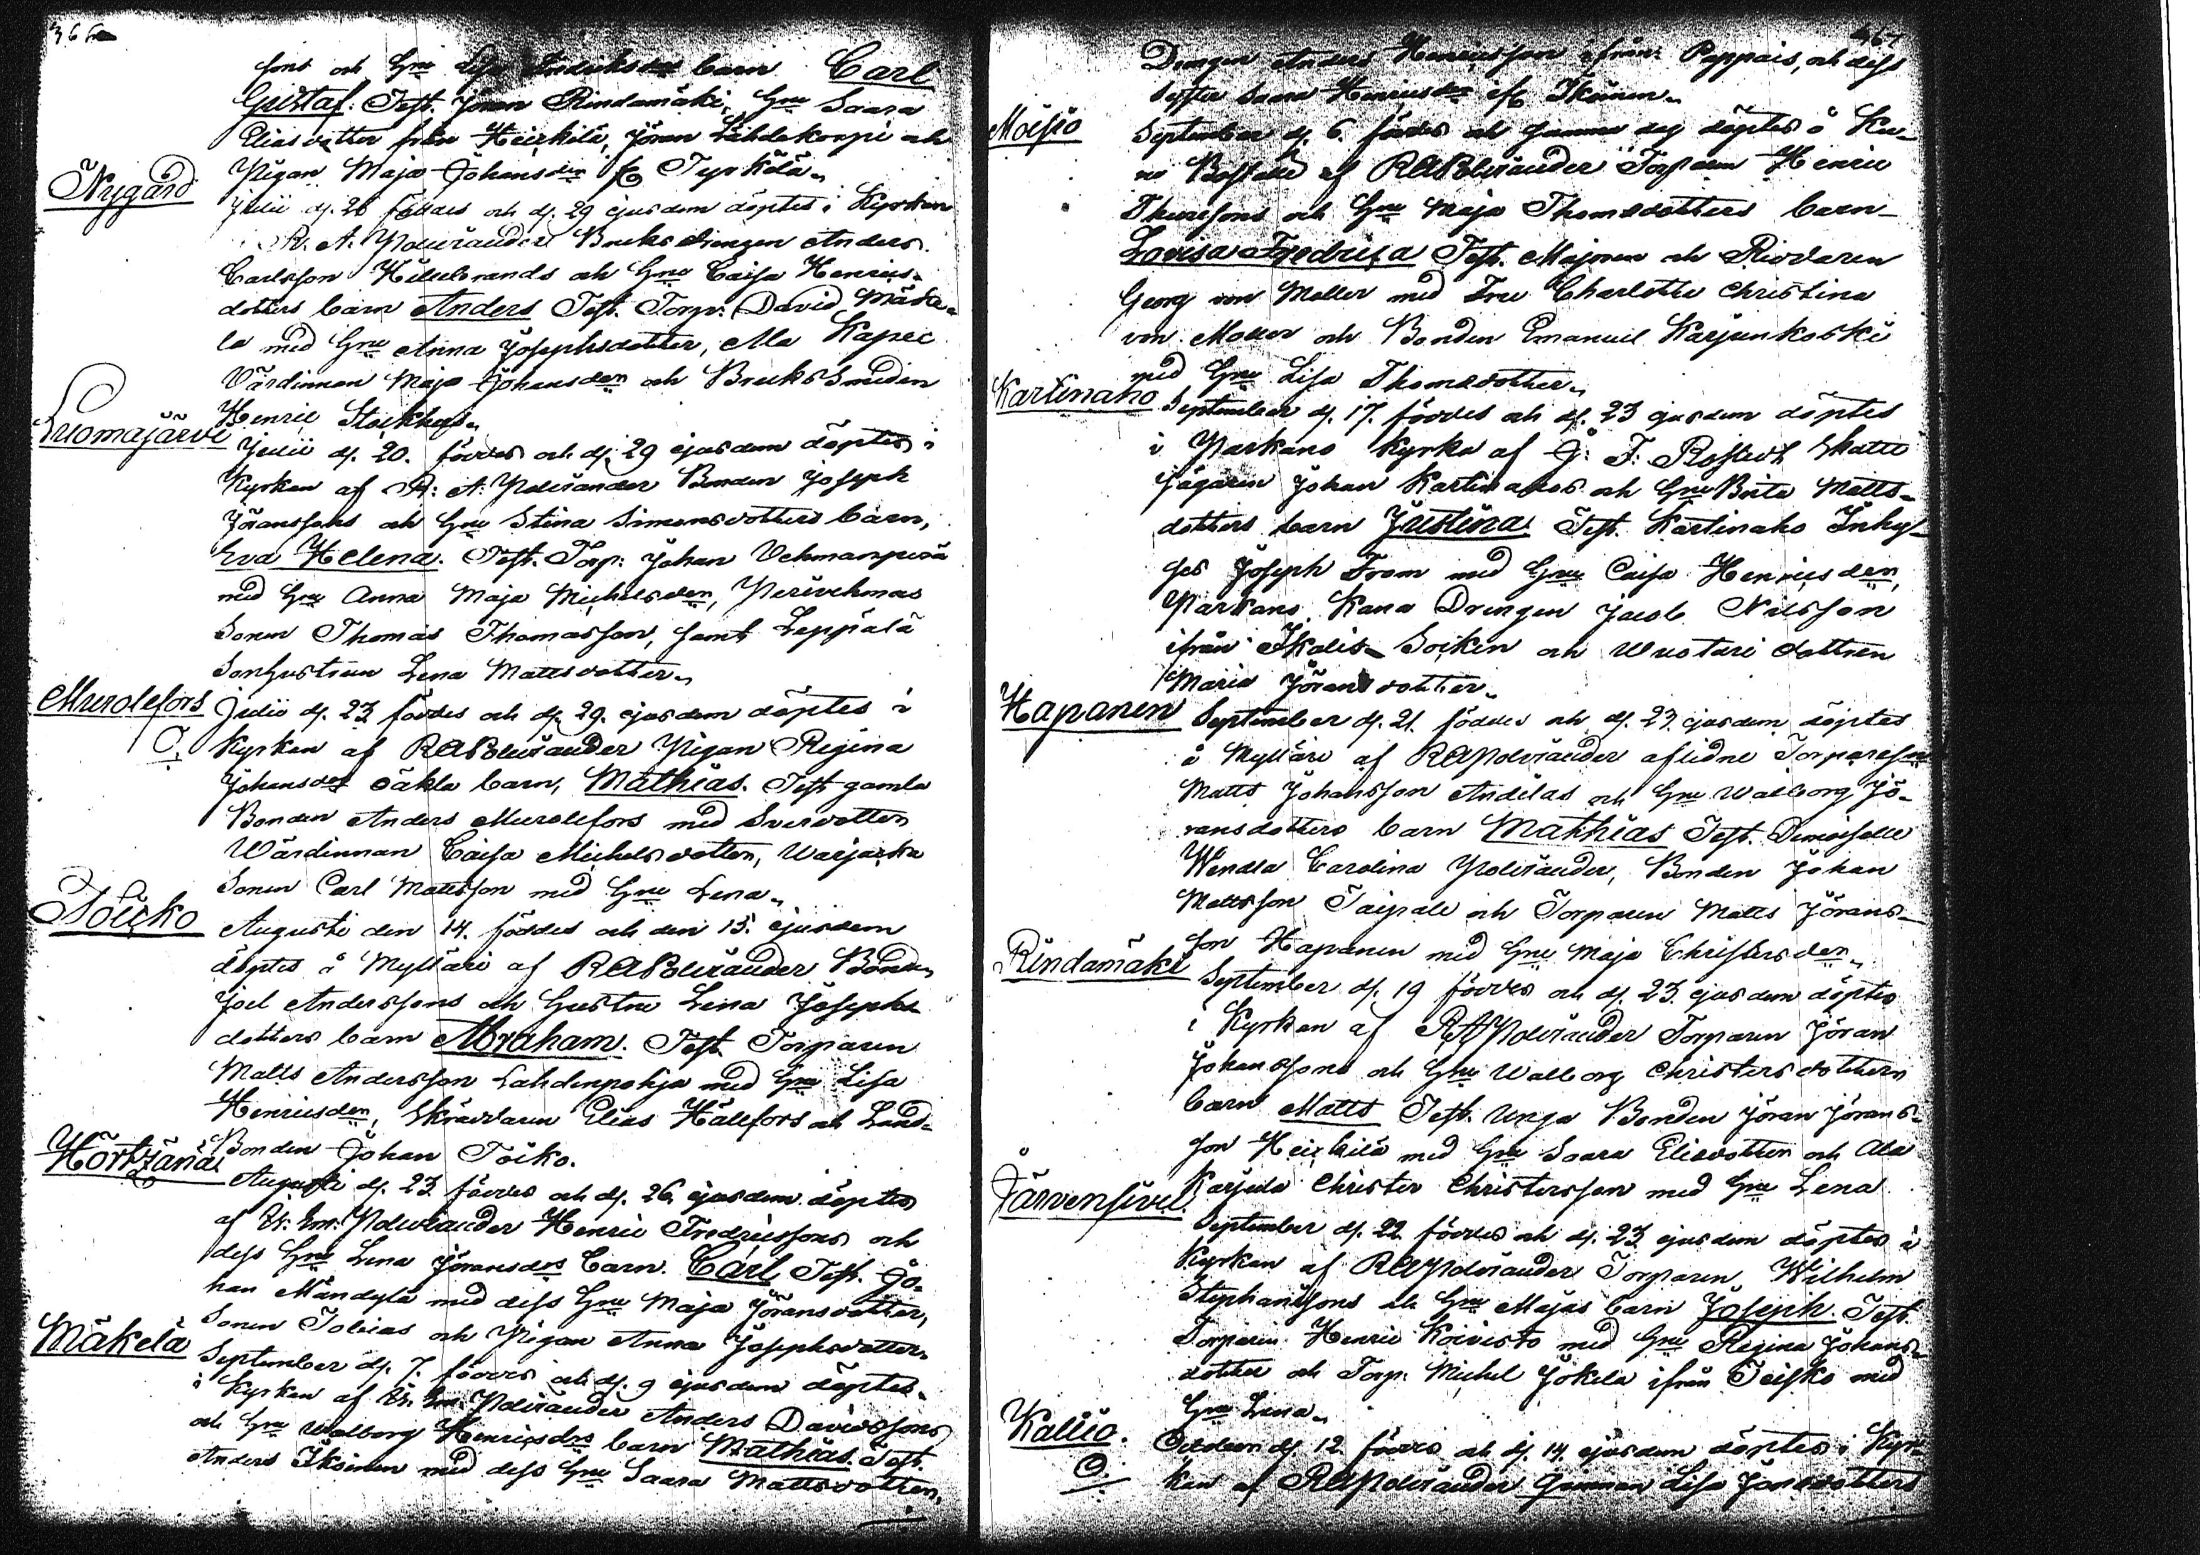 366
sons och Gnu Lisa Fredriksdrs barn Carl
Gustaf. Test. Jöran Rindamäki, Gnu Saara
Eliasdotter från Heickilä, Jöran Lähdekorpi och
Pigan Maja Johansdr fr Tyrkölä
Nygård
Julii d. 26 föddes och d. 29 ejusdem döptes i Kyrkan
R. A. Polviander Bruks drengen Anders
Carlsson Hillebrands och Gnu Caisa Henrics-
dotters barn Anders Test. Torp. David Mäke-
lä med Gnu Anna Josephsdotter, Ala Kapee
Värdinnan Maja Johansdr och Bruks Smeden
Henric Stockfors
Luomajärvi
Julii d. 20. föddes och d. 29 ejusdem döptes i
Kyrkan af R. A. Polviander Bonden Joseph
Jöranssons och Gnu Stina Simonsdotters barn,
Eva Helena. Test. Torp. Johan Vehmanperä
med Gnu Anna Maja Michelsdr, Perivehmas
Sonen Thomas Thomasson, samt Leppälä
Sonhustrun Lena Mattsdotter
Murolefors
Julii d. 23 föddes och d. 29. ejusdem döptes i
O. Kyrkan af RAPolviander Pigan Regina
Johansdrs oäkta barn, Mathias. Test gamla
Bonden Anders Murolefors med Sverdotter
Wärdinnan Caisa Michelsdotter, Warjacka
Sonen Carl Mattsson med Gnu Lena
Töicko
Augusti den 14. föddes och den 15. ejusdem
döptes å Mylläri af RAPolviander Bonden
Joel Anderssons och hustru Lena Josephs
dotters barn Abraham. Test. Torparen
Matts Andersson Lahdenpohja med Gnu Lisa
Henricsdr, Skräddaren Elias Hällfors och Land-
Bonden Johan Töiko.
Hörtzänä
Augusti d. 23. föddes och d. 26. ejusdem döptes
af Polviander Henric Fredricssons och
dess Gnu Lena Jöransdrs barn. Carl Test. Jo-
han Mändylä med dess Gnu Maja Jöransdotter,
Sonen Tobias och Pigan Anna Josephsdotter
Mäkelä
September d. 7. föddes och d. 9 ejusdem döptes
i Kyrkan af Polviander Anders Davidssons
och Gnu Walborg Henricsdrs barn Mathias. Test.
Anders Ikoinen med dess Gnu Saara Mattsdotter,
367
Drengen Anders Henricsson ifrån Poppais, och dess
Syster Saara Henricsdr ifr. Ikoinen
Moisio
September d. 6. föddes och samma dag döptes å Ku-
ru Boställe af RAPolviander Torparen Henric
Thuressons och Gnu Maja Thomædotters barn
Lovisa Fredrica Test. Majoren och Riddaren
Georg von Moller med Fru Charlotta Christina
von Moller och Bonden Emanuel Karjunkoski
med Gnu Lisa Thomædotter
Kartinaho
September d. 17. föddes och d. 23 ejusdem döptes
i Parkano Kyrka af J: F: Rostedt Skatte
Jägaren Johan Kartinahos och Gnu Brita Matts-
dotters barn Justina. Test. Kartinaho Inhy-
ses Joseph From med Gnu Caisa Henricsdr,
Parkano Kana Drengen Jacob Nilsson
ifrån Ikalis Socken och Wuotari dottren
Maria Jöransdotter
Hapanen
September d. 21. föddes och d. 23. ejusdem döptes
å Mylläri af RAPolviander aflidne Torparesn
Matts Johansson Andilas och Gnu Walborg Jö-
ransdotters barn Mathias Test. Demoiselle
Wendla Carolina Polviander, Bonden Johan
Mattsson Taipale och Torparen Matts Jörans-
son Hapanen med Gnu Maja Christersdr
Rindamäki
September d. 19 föddes och d. 23. ejusdem döptes
i Kyrkan af RAPolviander Torparen Jöran
Johanssons och Gnu Walborg Christersdotters
barn Matts Test. unga Bonden Jöran Jörans-
son Heickilä med Gnu Saara Eliædotter och Ala
Karjula Christer Christersson med Gnu Lena
Järvensivu
September d. 22 föddes och d. 23 ejusdem döptes i
Kyrkan af RAPolviander Torparen Wilhelm
Stephanssons och Gnu Majas barn Joseph. Test.
Torparen Henric Koivisto med Gnu Regina Johans-
dotter och Torp. Michel Jokela ifrån Teisko med
Gnu Lena
Kallio.
O.
October d. 12. föddes och d. 14. ejusdem döptes i Kyr-
kan af RAPolviander Qvinnan Lisa Jonædotters